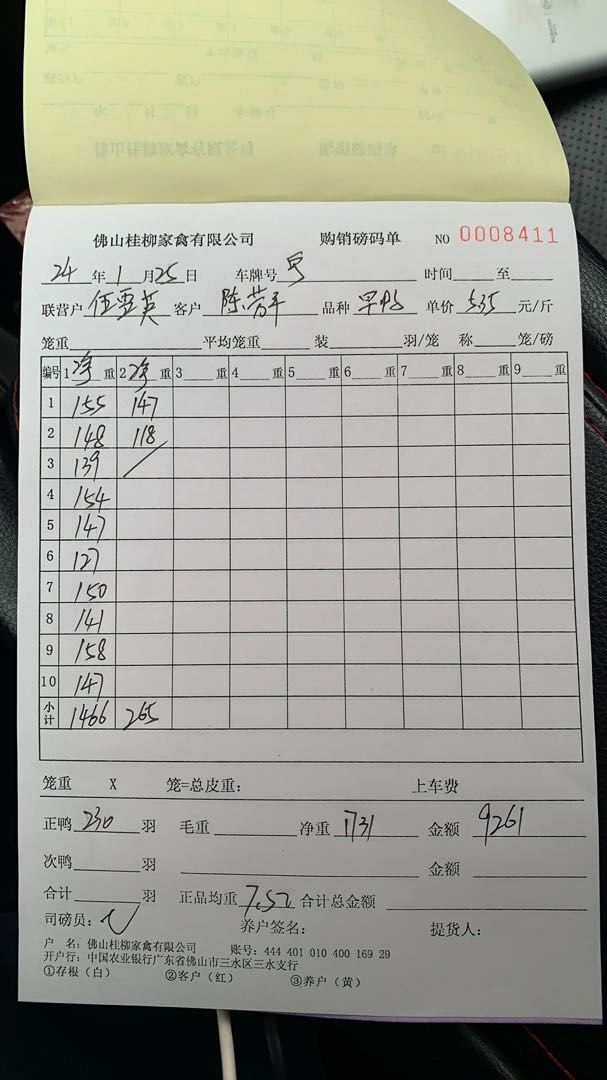 佛山桂柳家禽有限公司 购销磅码单 NO 0008411
24 年 1 月 25 日 车牌号 时间 至
联营户 伍雪英 客户 陈劳平 品种 旱鸭 单价 5.35 元/斤
笼重 平均笼重 装 羽/笼 称 笼/磅
编号 1 净 重 2 净 重 3 重 4 重 5 重 6 重 7 重 8 重 9 重
1 155 147
2 148 118
3 139 /
4 154
5 147
6 127
7 150
8 141
9 158
10 147
小计 1466 265
笼重 X 笼=总皮重: 上车费
正鸭 230 羽 毛重 净重 1731 金额 9261
次鸭 羽 金额
合计 羽 正品均重 7.52 合计总金额
司磅员: 养户签名: 提货人:
户 名: 佛山桂柳家禽有限公司 账号: 444 401 010 400 169 29
开户行: 中国农业银行广东省佛山市三水区三水支行
①存根（白） ②客户（红） ③养户（黄）